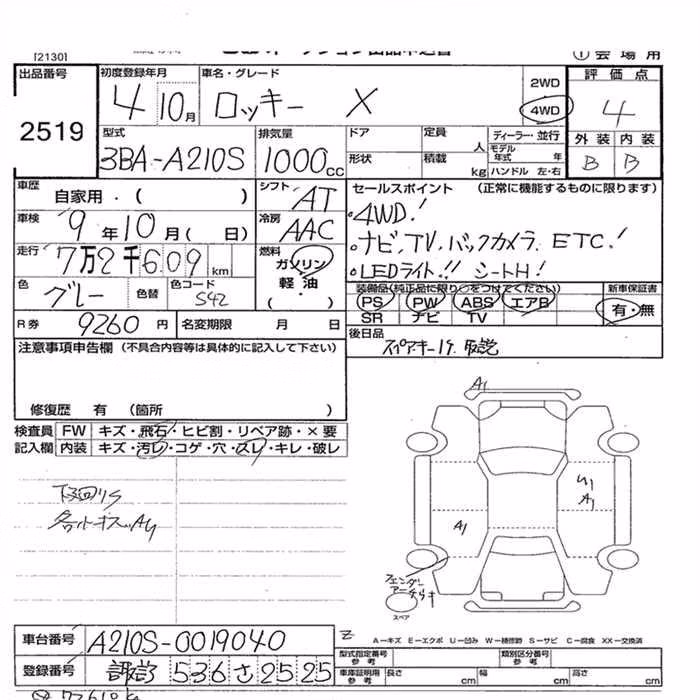 [2130]
① 会 場 用
出品番号 初度登録年月 車名・グレード 2WD 評 価 点
2519 4 10月 ロッキー X 4WD 4
型式 排気量 ドア 定員 人 ディーラー・並行 外装 内装
3BA-A210S 1000cc 形状 積載 kg モデル年式 年 ハンドル 左・右 B B
車歴 自家用・( ) シフト AT セールスポイント (正常に機能するものに限ります)
車検 9年10月( 日) 冷房 AAC ・4WD!
走行 7万2千609km 燃料 ガソリン・軽油・( ) ・ナビ,TV,バックカメラ,ETC!
・LEDライト!! シートH!
色 グレー 色替 色コード S42 装備品(純正品に限り○をつけてください) 新車保証書
PS PW ABS エアB 有・無
R券 9260円 名変期限 月 日 SR ナビ TV
注意事項申告欄 (不具合内容等は具体的に記入して下さい) 後日品
スペアキー1ケ. 取説
修復歴 有 (箇所 )
検査員 FW キズ・飛石・ヒビ割・リペア跡・×要
記入欄 内装 キズ・汚レ・コゲ・穴・スレ・キレ・破レ
A1
U1
A1
A1
下廻りS
各部小キズ,A4
フェンダー
アーチキ
スペア
A-キズ E-エクボ U-凹み W-補修跡 S-サビ C-腐食 XX-交換済
車台番号 A210S-0019040 型式指定番号 参考 類別区分番号 参考
登録番号 536 さ 2525 車庫証明用 参考 長さ cm 幅 cm 高さ cm